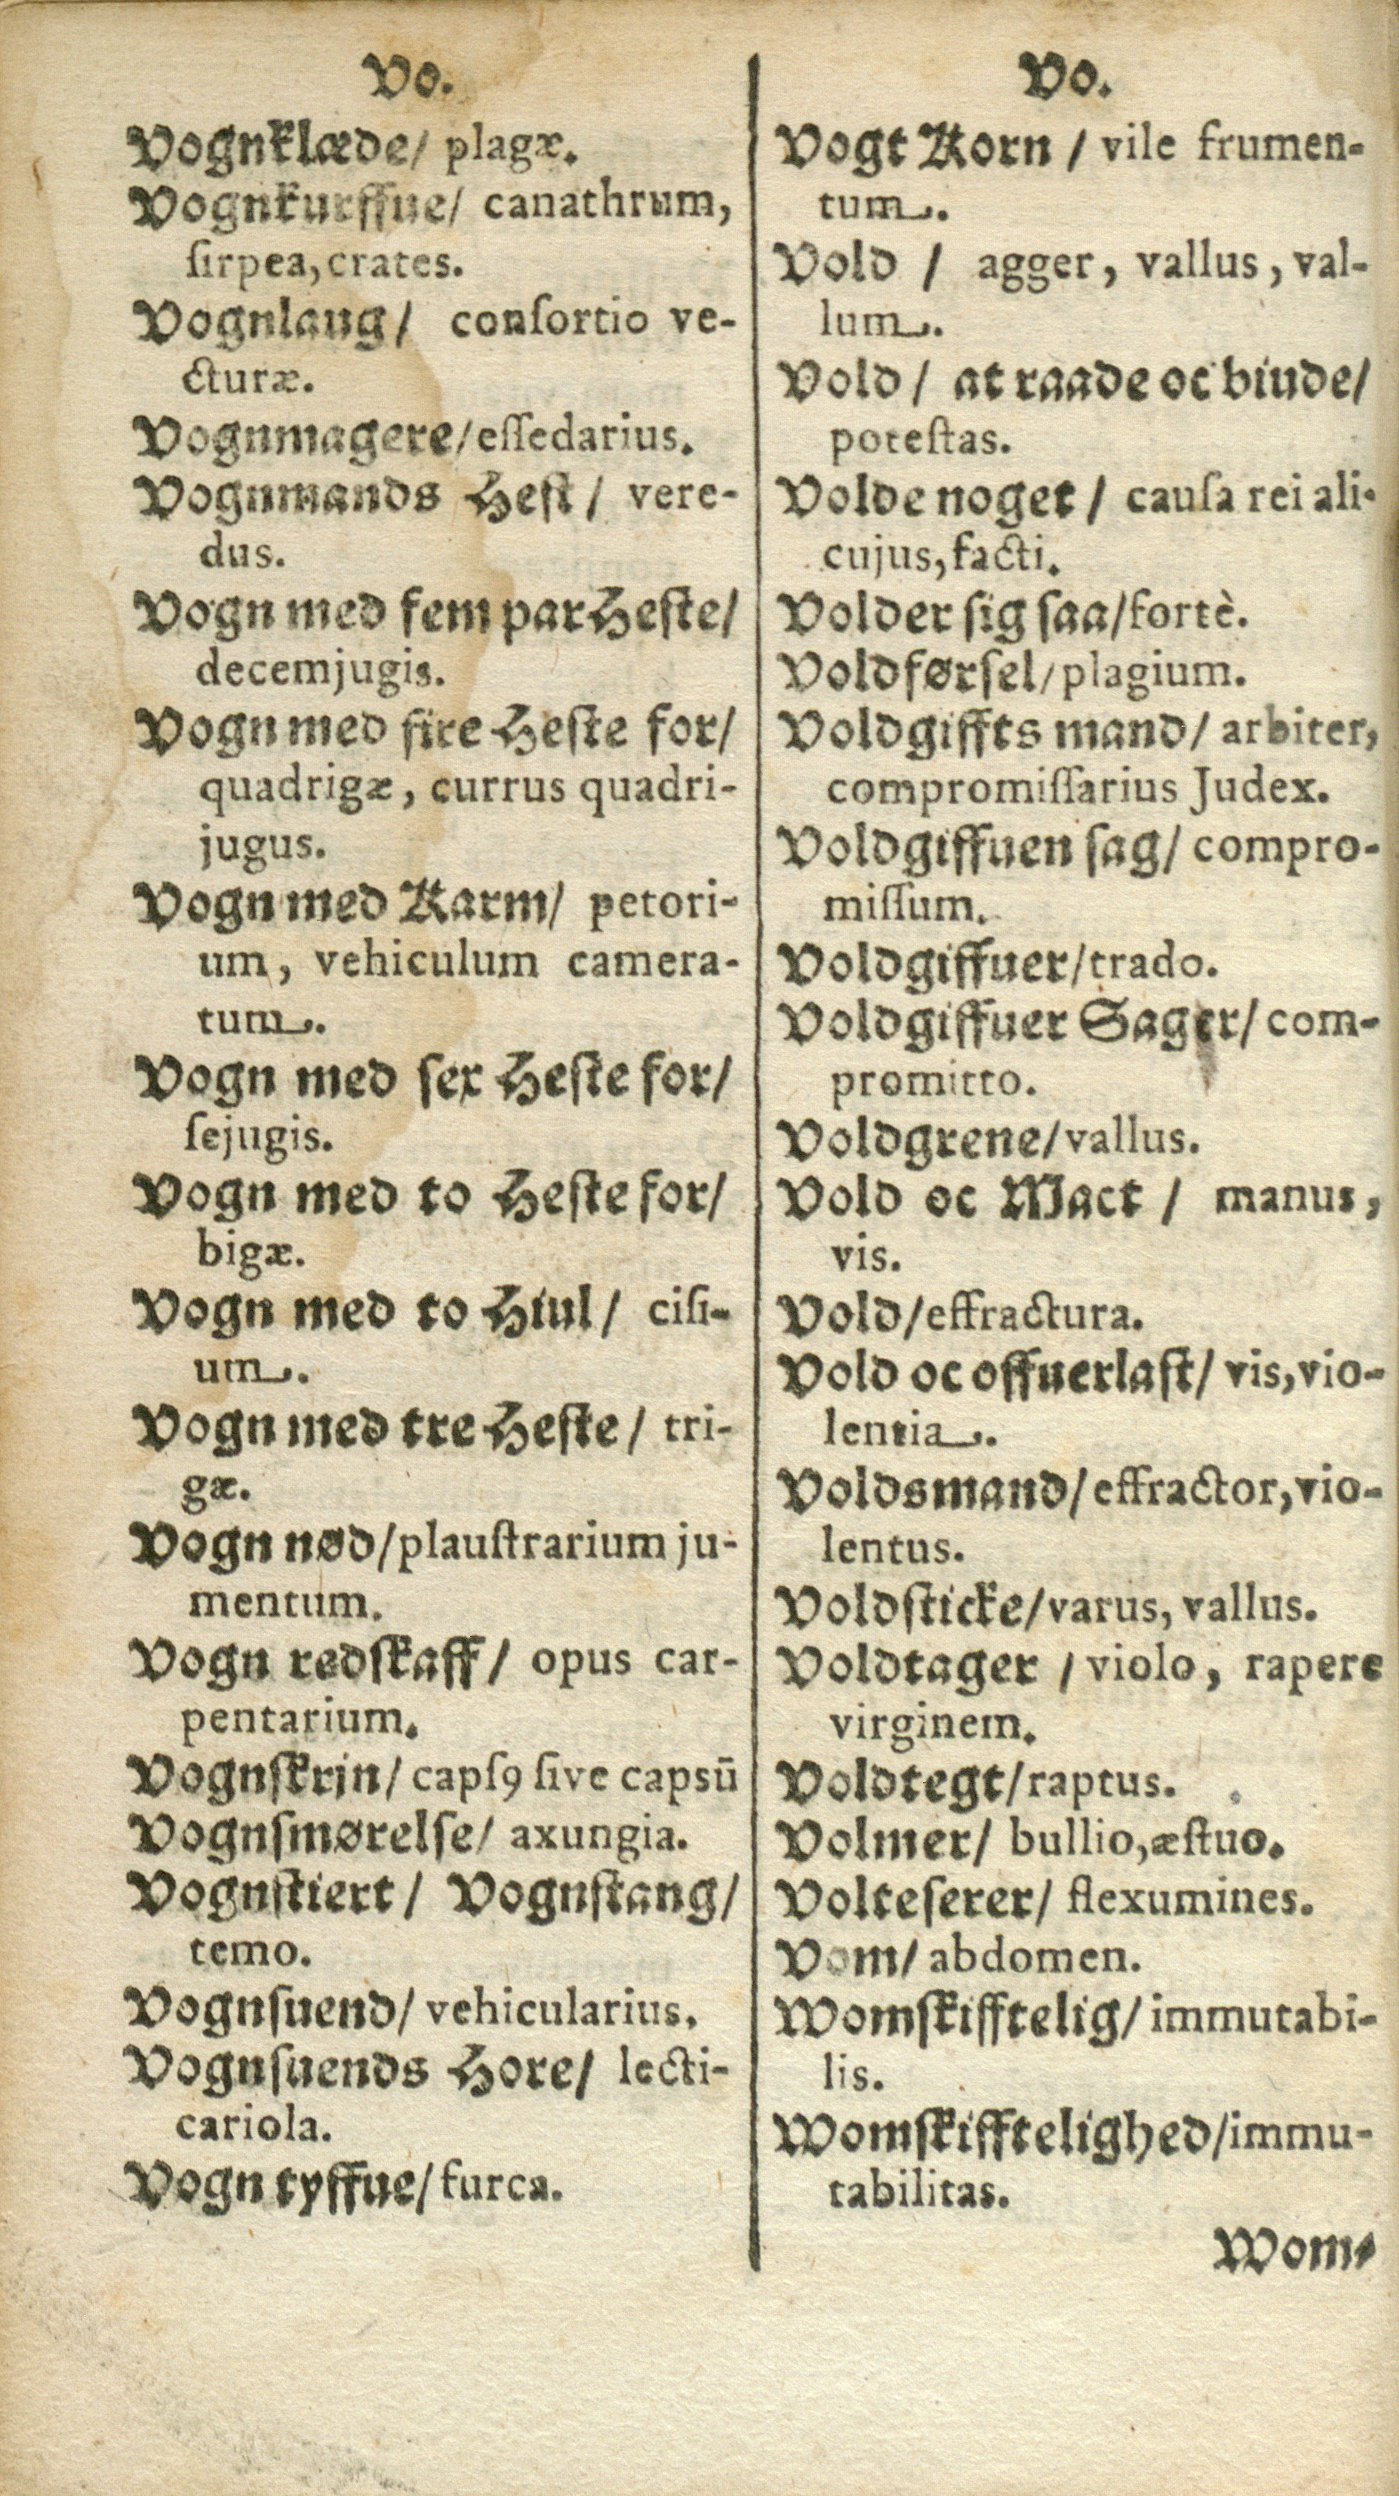 Vo.
Vognklæde/ plagæ.
Vognkurffue/ canathrum,
ſirpea, crates.
Vognlaug/ conſortio ve-
cturæ.
Vognmagere/ eſſedarius.
Vognmands Heſt/ vere-
dus.
Vogn med fem par Heſte/
decemjugis.
Vogn med fire Heſte for/
quadrigæ, currus quadri-
jugus.
Vogn med Karm/ petori-
um, vehiculum camera-
tum.
Vogn med ſex Heſte for/
ſejugis.
Vogn med to Heſte for/
bigæ.
Vogn med to Hiul/ ciſi-
um.
Vogn med tre Heſte/ tri-
gæ.
Vogn nød/ plauſtrarium ju-
mentum.
Vogn redſkaff/ opus car-
pentarium.
Vognſkrin/ capſꝯ ſive capsū
Vognſmørelſe/ axungia.
Vognſtiert/ Vognſtang/
temo.
Vognſuend/ vehicularius.
Vognſuends Hore/ lecti-
cariola.
Vogn tyffue/ furca.
Vo.
Vogt Korn / vile frumen-
tum.
Vold / agger, vallus, val-
lum.
Vold/ at raade oc binde/
poteſtas.
Volde noget/ cauſa rei ali-
cujus, facti.
Volder ſig ſaa/ fortè.
Voldførſel/ plagium.
Voldgiffts mand/ arbiter,
compromiſſarius Judex.
Voldgiffuen ſag/ compro-
miſſum.
Voldgiffuer/ trado.
Voldgiffuer Sager/ com-
promitto.
Voldgrene/ vallus.
Vold oc Mact / manus,
vis.
Vold/ effractura.
Vold oc offuerlaſt/ vis, vio-
lentia.
Voldsmand/ effractor, vio-
lentus.
Voldſticke/ varus, vallus.
Voldtager / violo, rapere
virginem.
Voldtegt/ raptus.
Volmer/ bullio, æſtuo.
Volteſerer/ flexumines.
Vom/ abdomen.
Womſkifftelig/ immutabi-
lis.
Womſkifftelighed/ immu-
tabilitas.
Wom-